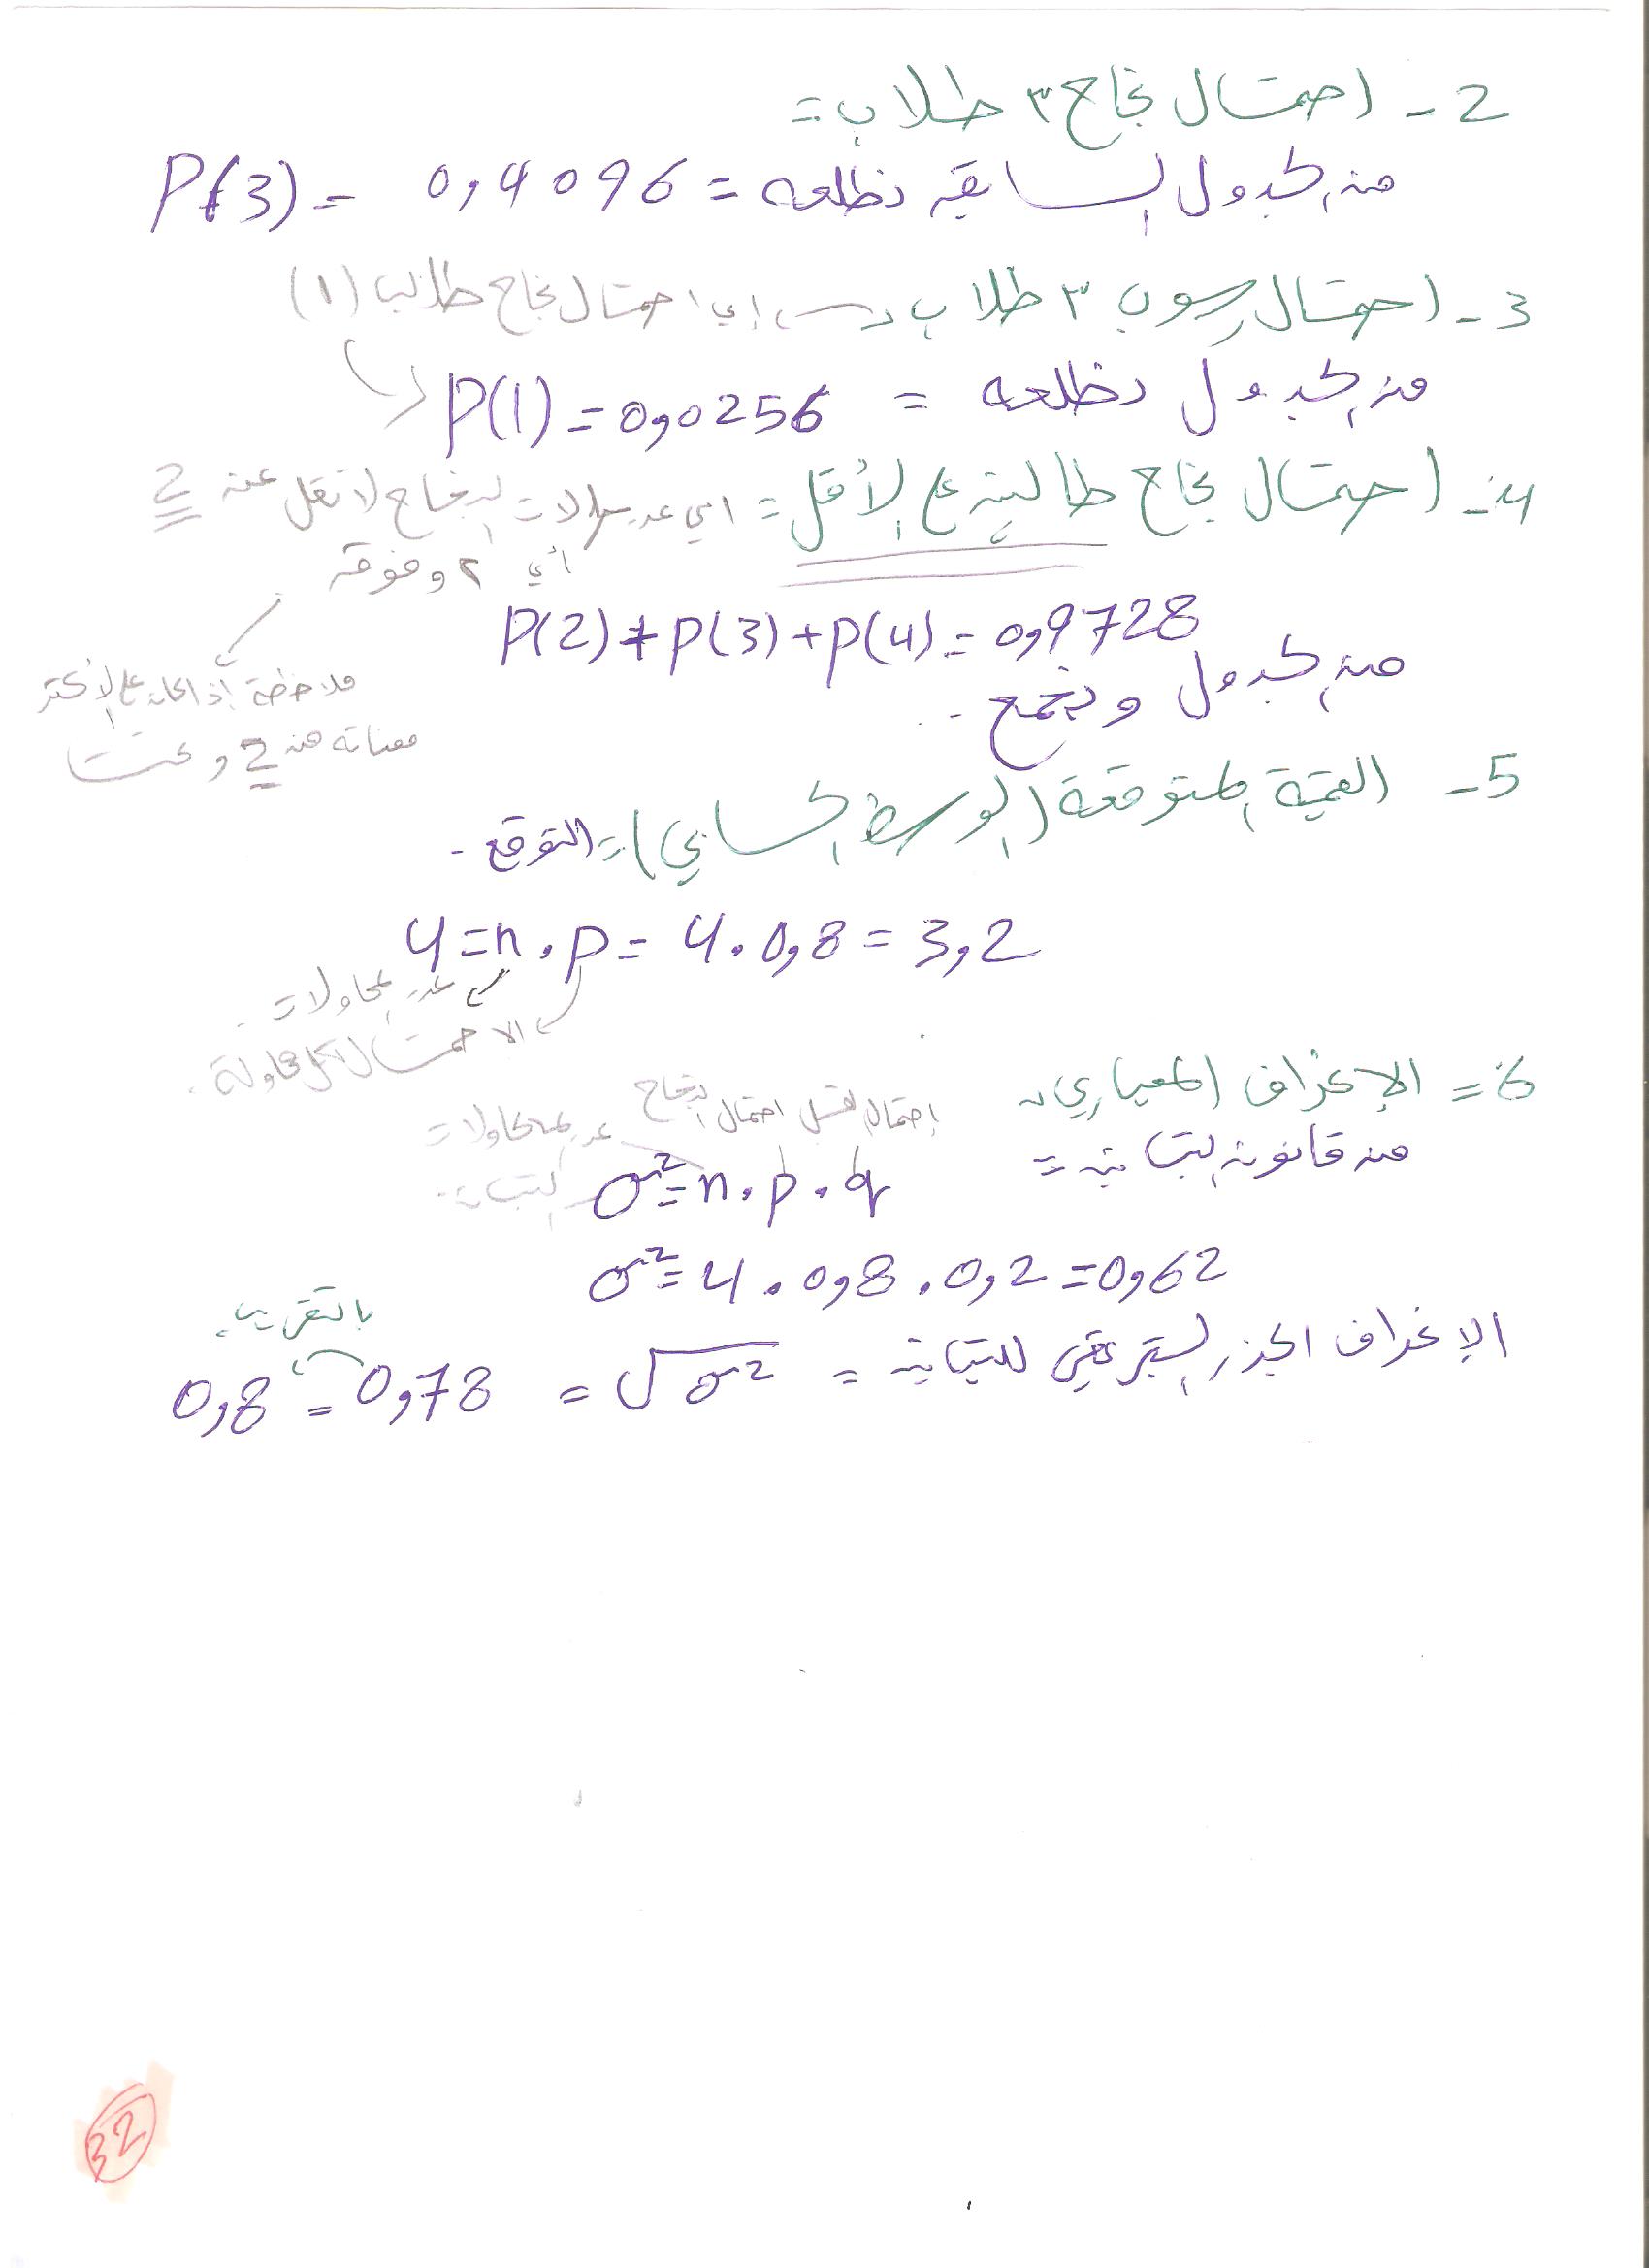 2 - احتمال نجاح ٣ طلاب =
من الجدول السابق نطلعه = 0,4096 = P(3)
3 - احتمال رسوب ٣ طلاب أي احتمال نجاح طالب (١)
من الجدول نطلعه = P(1) = 0,0256
4 - احتمال نجاح طالبين ع الأقل = أي عدد حالات النجاح لا تقل عن 2
أي ٢ وفوق
P(2) + P(3) + P(4) = 0,9728
من الجدول ونجمع
ملاحظة إذا كان ع الأكثر
معناته من 2 وتحت
5 - القيمة المتوقعة (الوسط الحسابي) = التوقع
μ = n . p = 4 . 0,8 = 3,2
عدد المحاولات
الاحتمال لكل محاولة
6 = الإنحراف المعياري
إحتمال الفشل احتمال النجاح عدد المحاولات
من قانون التباين =
التباين
σ² = n . p . q
σ² = 4 . 0,8 . 0,2 = 0,62
بالتقريب
الإنحراف الجذر التربيعي للتباين = √σ² = 0,78 = 0,8
32